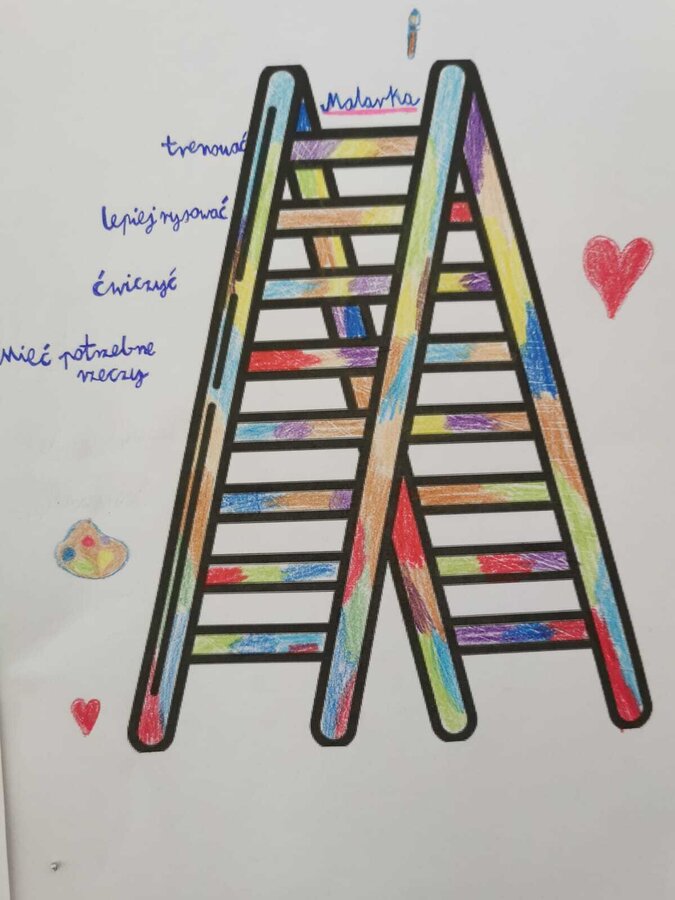 Malarka
trenować
lepiej rysować
ćwiczyć
Mieć potrzebne
rzeczy